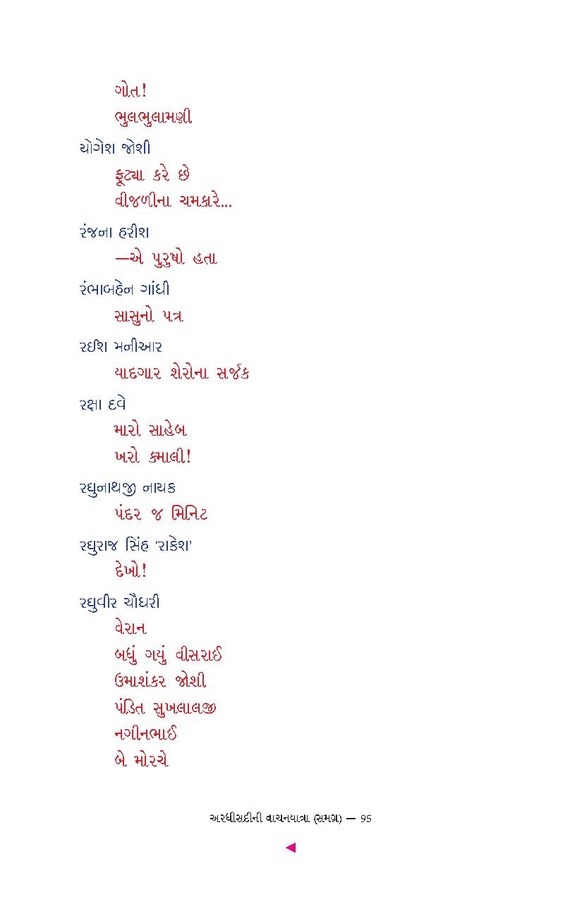 ગોત!
ભુલભુલામણી
યોગેશ જોશી
ફૂટ્યા કરે છે
વીજળીના ચમકારે...
રંજના હરીશ
—એ પુરુષો હતા
રંભાબહેન ગાંધી
સાસુનો પત્ર
રઈશ મનીઆર
યાદગાર શેરોના સર્જક
રક્ષા દવે
મારો સાહેબ
ખરો ક્માલી!
રઘુનાથજી નાયક
પંદર જ મિનિટ
રઘુરાજ સિંહ ‘રાકેશ’
દેખો!
રઘુવીર ચૌધરી
વેરાન
બધું ગયું વીસરાઈ
ઉમાશંકર જોશી
પંડિત સુખલાલજી
નગીનભાઈ
બે મોરચે
અરધીસદીની વાચનયાત્રા (સમગ્ર) — 95